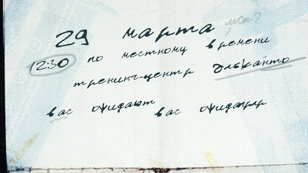 29 марта мск?
12:30 по местному времени
тренинг-центр Эльканто
вас ожидают вас ожидают